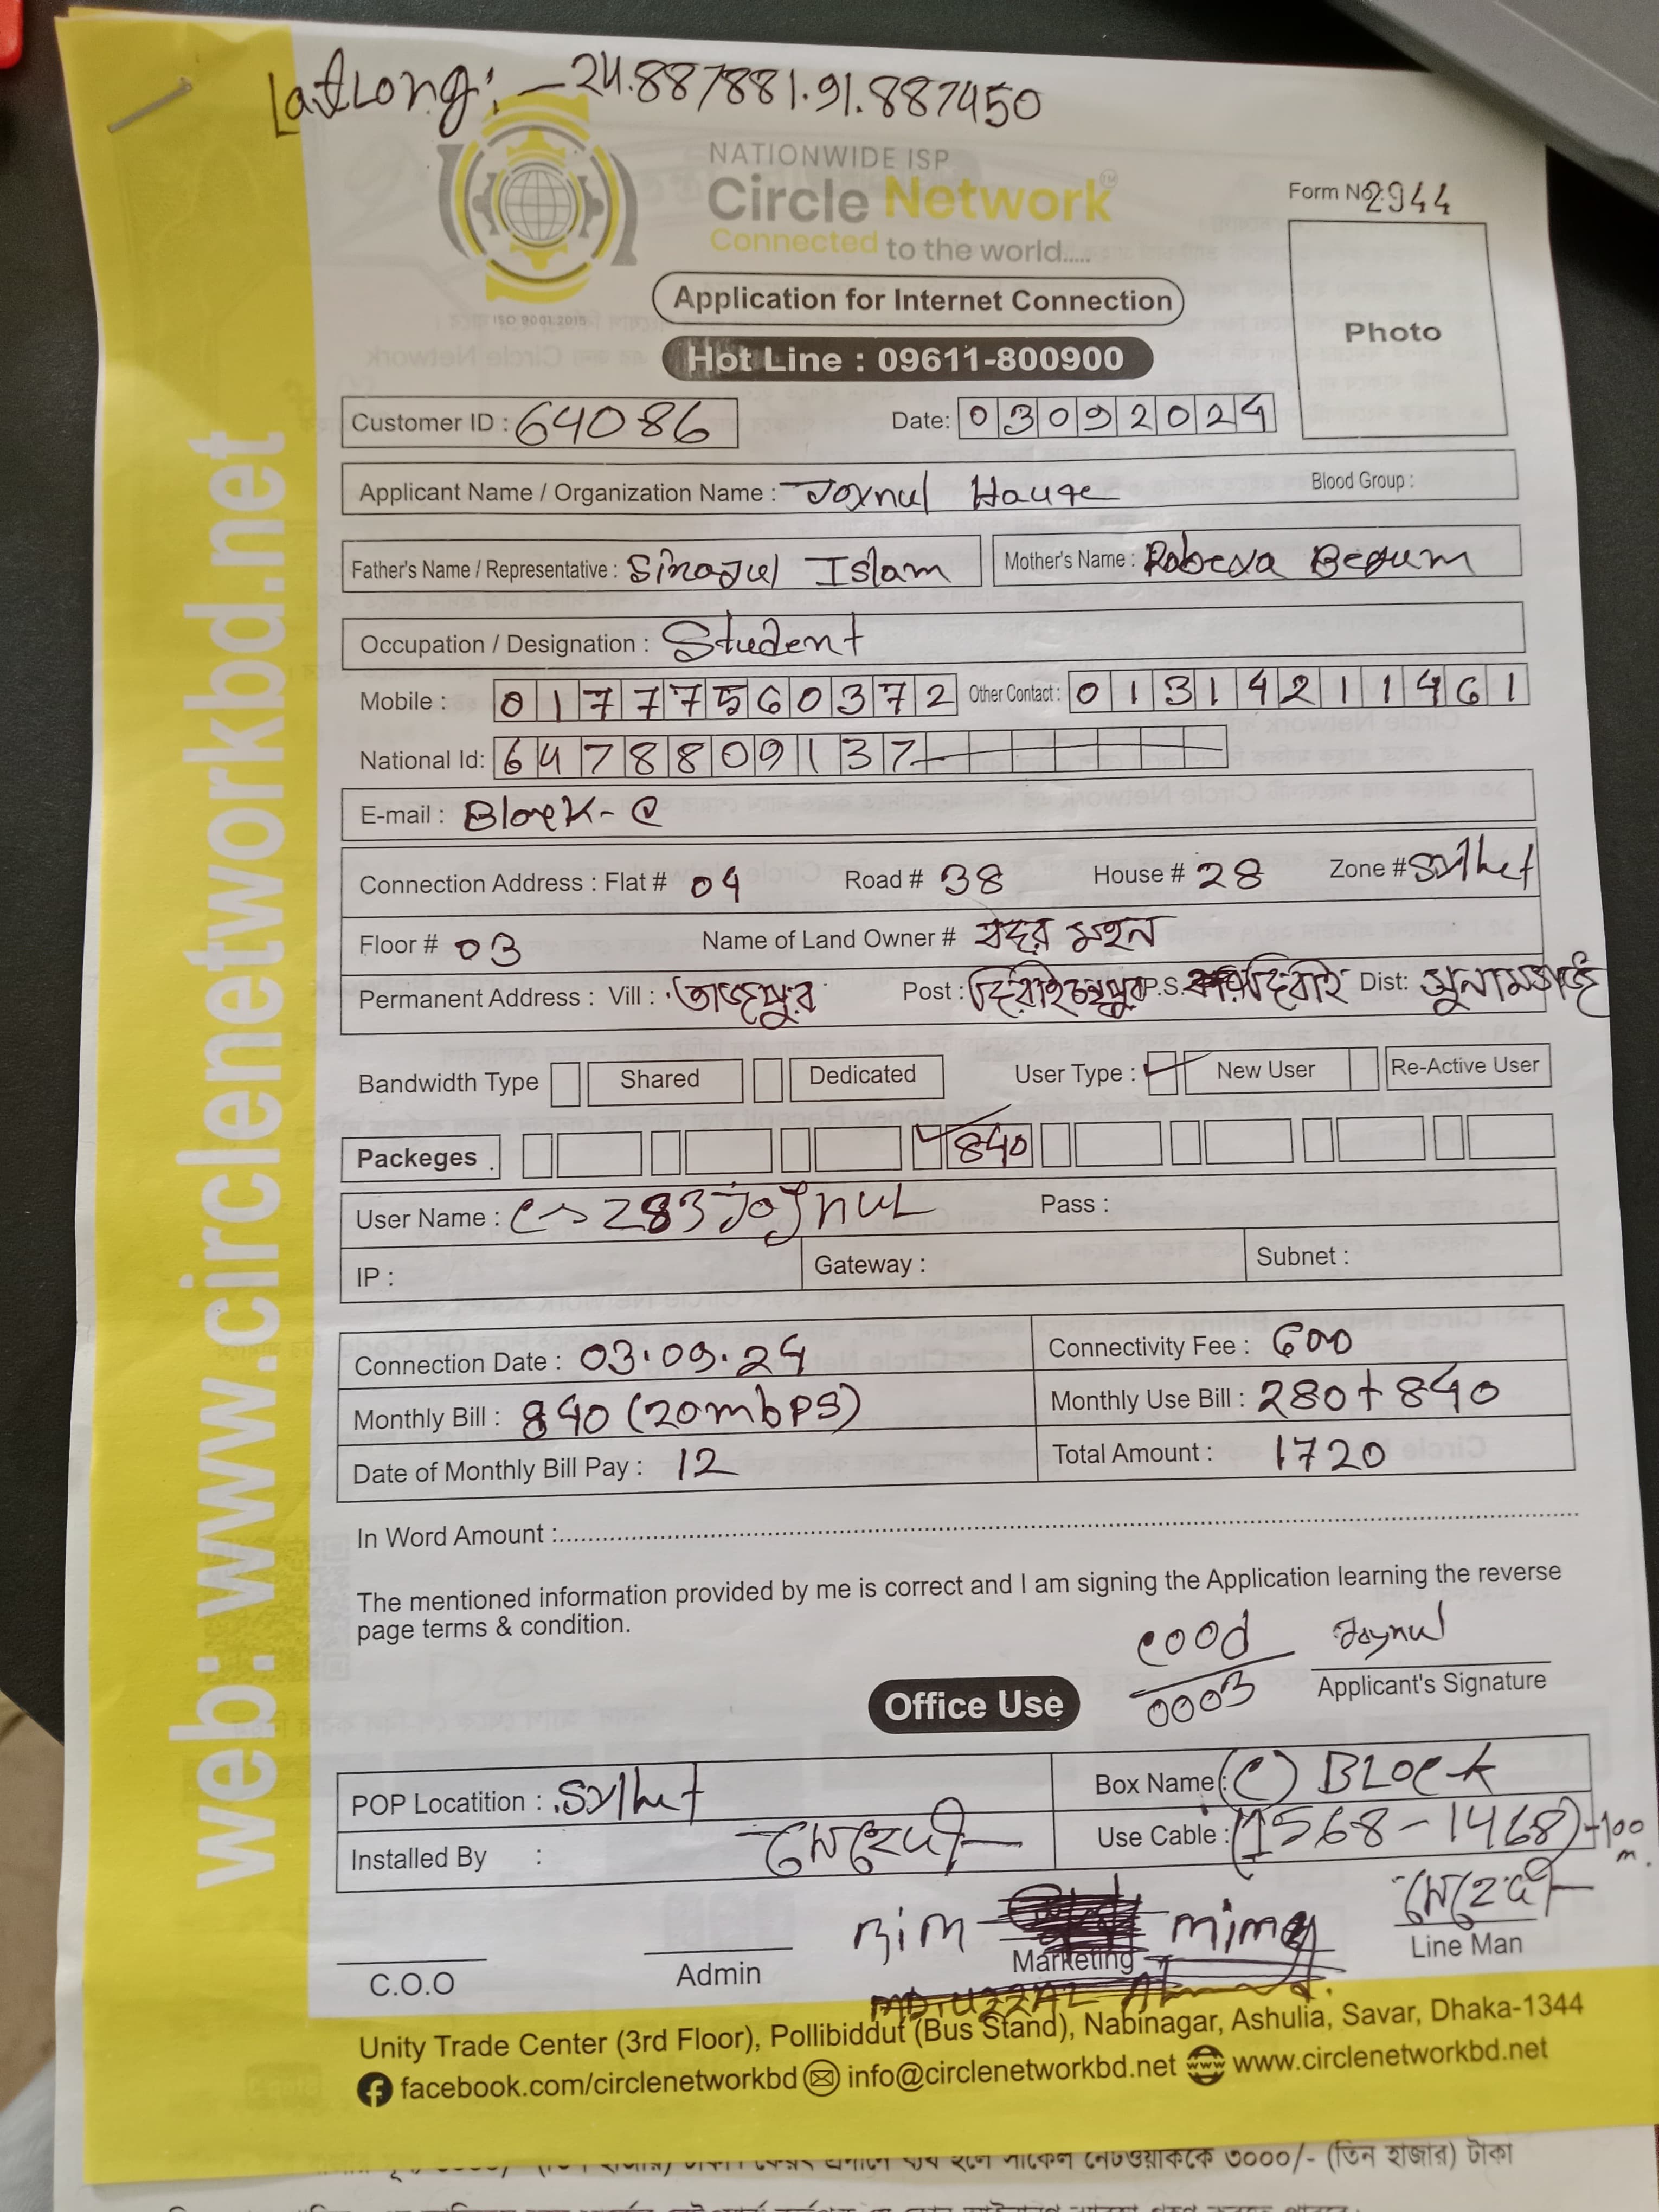 LatLong: - 24.887881.91.887450
NATIONWIDE ISP
Circle Network TM
Connected to the world.....
ISO 9001:2015
Form No: 2944
Photo
Application for Internet Connection
Hot Line : 09611-800900
Customer ID : 64086 Date: 03092024
Applicant Name / Organization Name : Joynul Hauqe Blood Group :
Father's Name / Representative : Sirajul Islam Mother's Name : Rabeya Begum
Occupation / Designation : Student
Mobile : 01777560372 Other Contact : 01314211461
National Id: 6478809137
E-mail : Block - C
Connection Address : Flat # 04 Road # 38 House # 28 Zone # Sylhet
Floor # 03 Name of Land Owner # বদর মহল
Permanent Address : Vill : তাজপুর Post : দিরাইচান্দপুর P.S. দিরাই Dist: সুনামগঞ্জ
Bandwidth Type Shared Dedicated User Type : New User Re-Active User
Packeges 840
User Name : C-s283joynul Pass :
IP : Gateway : Subnet :
Connection Date : 03.09.24 Connectivity Fee : 600
Monthly Bill : 840 (20mbps) Monthly Use Bill : 280+840
Date of Monthly Bill Pay : 12 Total Amount : 1720
In Word Amount :
The mentioned information provided by me is correct and I am signing the Application learning the reverse
page terms & condition.
0003
Joynul
Applicant's Signature
Office Use
POP Locatition : Sylhet Box Name : (C) BLOCK
Installed By : মেহেদী Use Cable : (1568-1468)-100 m.
মেহেদী
C.O.O Admin Marketing Line Man
Unity Trade Center (3rd Floor), Pollibiddut (Bus Stand), Nabinagar, Ashulia, Savar, Dhaka-1344
facebook.com/circlenetworkbd info@circlenetworkbd.net www.circlenetworkbd.net
web: www.circlenetworkbd.net
৩০০০/- (তিন হাজার) টাকা